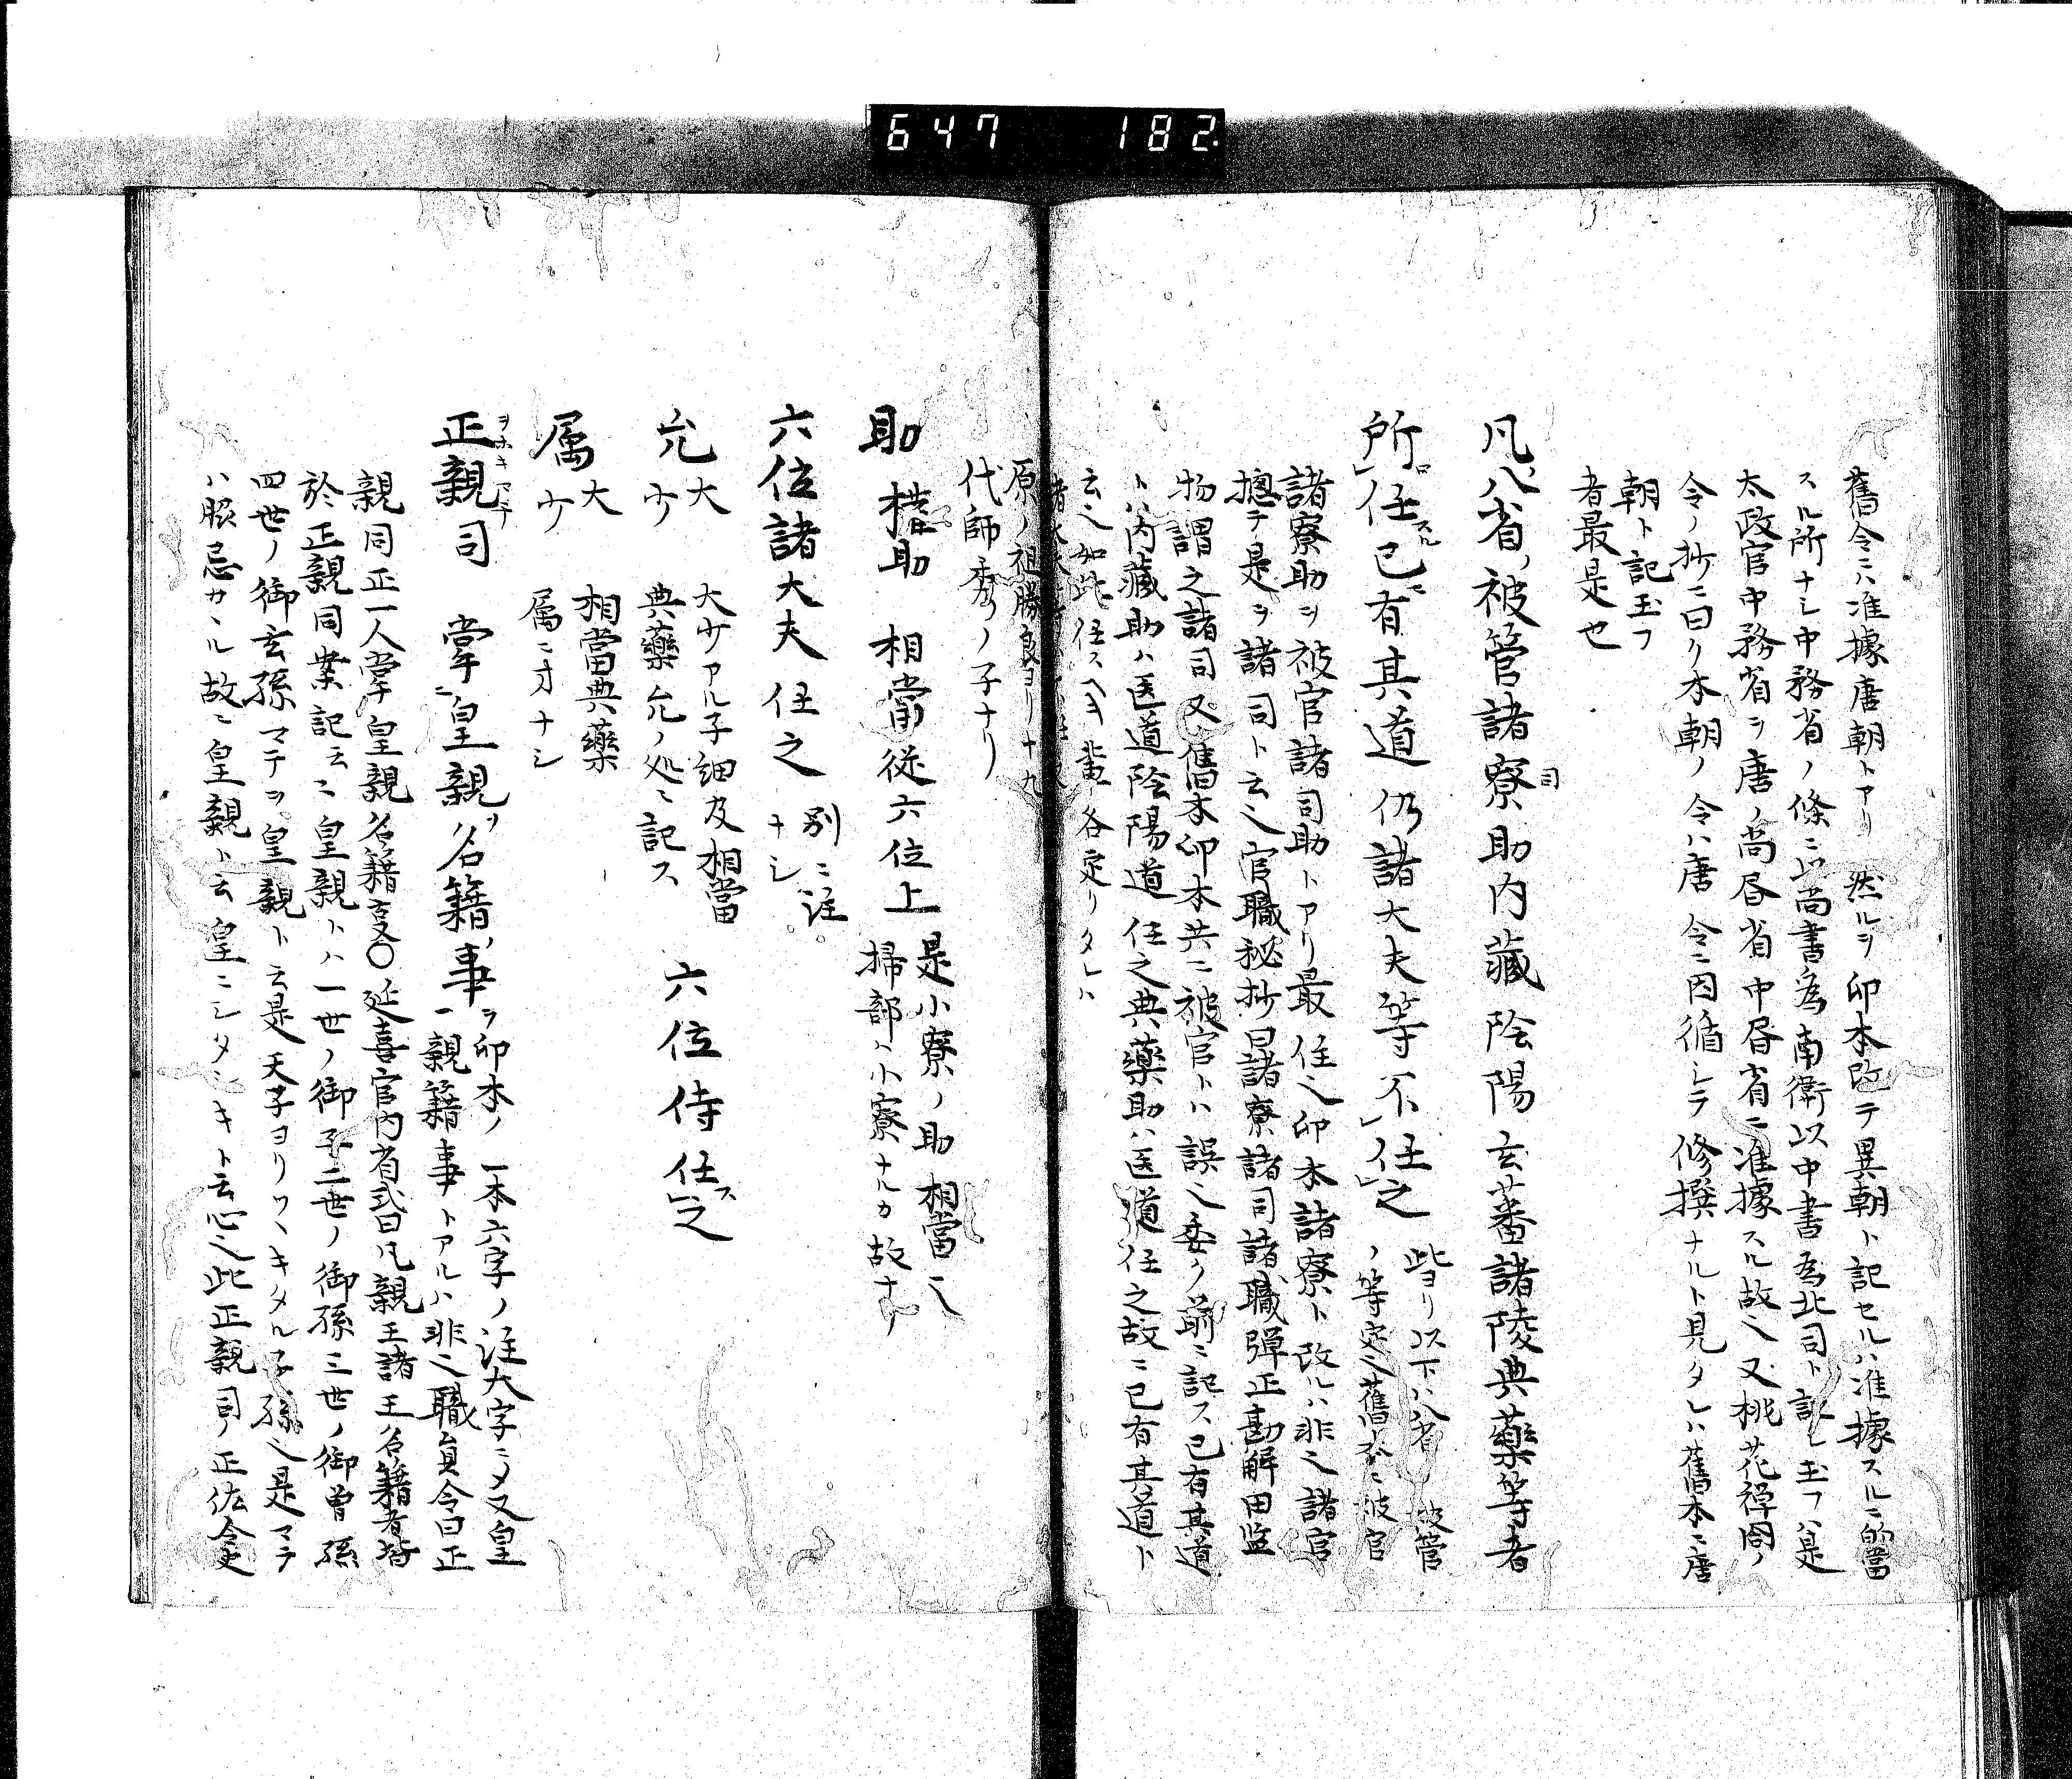 647 182.
舊令ニハ准據唐朝トアリ 然ルヲ印本改テ異朝ト記セルハ准據スルニ的當
スル所ナシ中務省ノ條ニ以尚書為南衛以中書為北司ト記シ玉フハ是
太政官中務省ヲ唐ノ尚書省中書省ニ准據スル故也又桃花禅閤ノ
令ノ抄ニ曰ク本朝ノ令ハ唐令ニ因循シテ修撰ナルト見タレハ舊本ニ唐
朝ト記玉フ
者最是也
凡八省ノ被管諸寮司助内藏陰陽玄蕃諸陵典藥等者
所ロ任スル已ニ有其道仍諸大夫等不任之
諸寮助ヲ被官諸司助トアリ最任之印本諸寮ト改ルハ非也諸官
摠テ是ヲ諸司ト云也官職秘抄曰諸寮諸司諸職彈正勘解田監
物謂之諸司又舊本印本共ニ被官トハ誤也委ク前ニ記ス已有其道
トハ内藏助ハ医道陰陽道任之典藥助ハ医道任之故ニ已有其道ト
云也如此任スヘキ輩各定リタレハ
原ノ祖勝良ヨリ十九
代師秀ノ子ナリ
助 權助 相當從六位上 是小寮ノ助相當也
掃部ハ小寮ナルカ故ナリ
六位諸大夫任之 別ニ註
ナシ
允 大
少 大少アル子細及相當
典藥允ノ処ニ記ス 六位侍任ス之
属 大
少 相當典藥
属ニオナシ
正親司 掌ニ皇親ノ名籍ノ事ヲ印本ノ一本六字ノ註大字ニメ又皇
一親籍事トアルハ非也職員令曰正
親同正一人掌皇親名籍事〇延喜宮内省式曰凡親王諸王名籍者皆
於正親同案記云々皇親トハ一世ノ御子二世ノ御孫三世ノ御曾孫
四世ノ御玄孫マテヲ皇親ト云是天子ヨリワヽキタル子孫也是マテ
ハ服忌カヽル故ニ皇親ト云皇ニシタシキト云心也此正親司ノ正佑令史